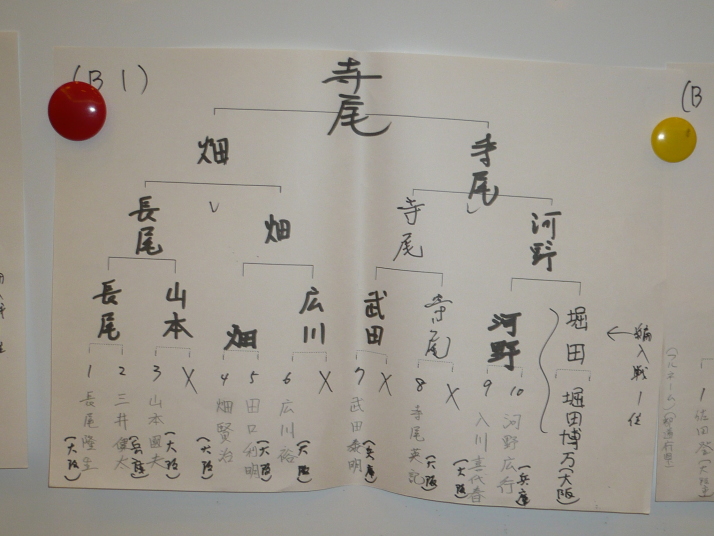 (B1)
寺尾
畑
寺尾
長尾
畑
寺尾
河野
長尾
山本
畑
広川
武田
寺尾
河野
堀田
←編入戦1位
1 長尾隆生 (大阪)
2 三井健太 (兵庫)
3 山本國夫 (大阪)
X
4 畑賢治 (大阪)
5 田口利明 (大阪)
6 広川裕 (大阪)
X
7 武田泰明 (兵庫)
X
8 寺尾英記 (大阪)
X
9 入川喜代香 (大阪)
10 河野広行 (兵庫)
堀田博万 (大阪)
(B
1